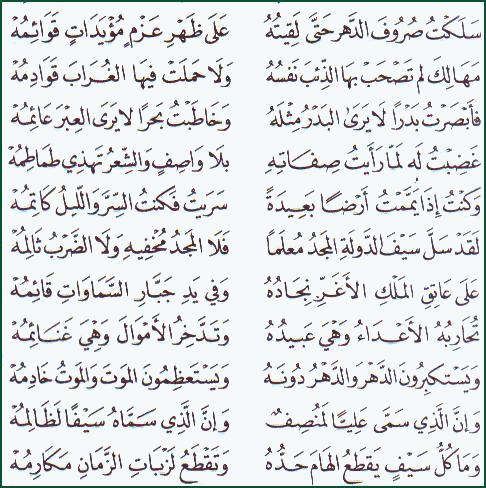 سَلَكْتُ صُرُوفَ الدَّهرِ حَتَّى لَقِيتُهُ عَلَى ظَهْرِ عَزْمٍ مُؤْيَدَاتٍ قَوَائِمُهْ
مَهَالِكَ لَمْ تَصْحَبْ بِهَا الذِّئْبَ نَفْسُهُ وَلَا حَمَلَتْ فِيهَا الْغُرَابَ قَوَادِمُهْ
فَأَبْصَرْتُ بَدْرًا لَا يَرَى الْبَدْرُ مِثْلَهُ وَخَاطَبْتُ بَحْرًا لَا يَرَى الْعِبْرَ عَائِمُهْ
غَضِبْتُ لَهُ لَمَّا رَأَيْتُ صِفَاتِهِ بِلَا وَاصِفٍ وَالشِّعْرُ تَهْذِي طَمَاطِمُهْ
وَكُنْتُ إِذَا يَمَّمْتُ أَرْضًا بَعِيدَةً سَرَيْتُ فَكُنْتُ السِّرَّ وَاللَّيْلُ كَاتِمُهْ
لَقَدْ سَلَّ سَيْفَ الدَّوْلَةِ الْمَجْدُ مُعْلَمًا فَلَا الْمَجْدُ مُخْفِيهِ وَلَا الضَّرْبُ ثَالِمُهْ
عَلَى عَاتِقِ الْمَلْكِ الْأَغَرِّ نِجَادُهُ وَفِي يَدِ جَبَّارِ السَّمَاوَاتِ قَائِمُهْ
تُحَارِبُهُ الْأَعْدَاءُ وَهْيَ عَبِيدُهُ وَتَدَّخِرُ الْأَمْوَالَ وَهْيَ غَنَائِمُهْ
وَيَسْتَكْبِرُونَ الدَّهْرَ وَالدَّهْرُ دُونَهُ وَيَسْتَعْظِمُونَ الْمَوْتَ وَالْمَوْتُ خَادِمُهْ
وَإِنَّ الَّذِي سَمَّى عَلِيًّا لَمُنْصِفٌ وَإِنَّ الَّذِي سَمَّاهُ سَيْفًا لَظَالِمُهْ
وَمَا كُلُّ سَيْفٍ يَقْطَعُ الْهَامَ حَدُّهُ وَتَقْطَعُ لَزْبَاتِ الزَّمَانِ مَكَارِمُهْ